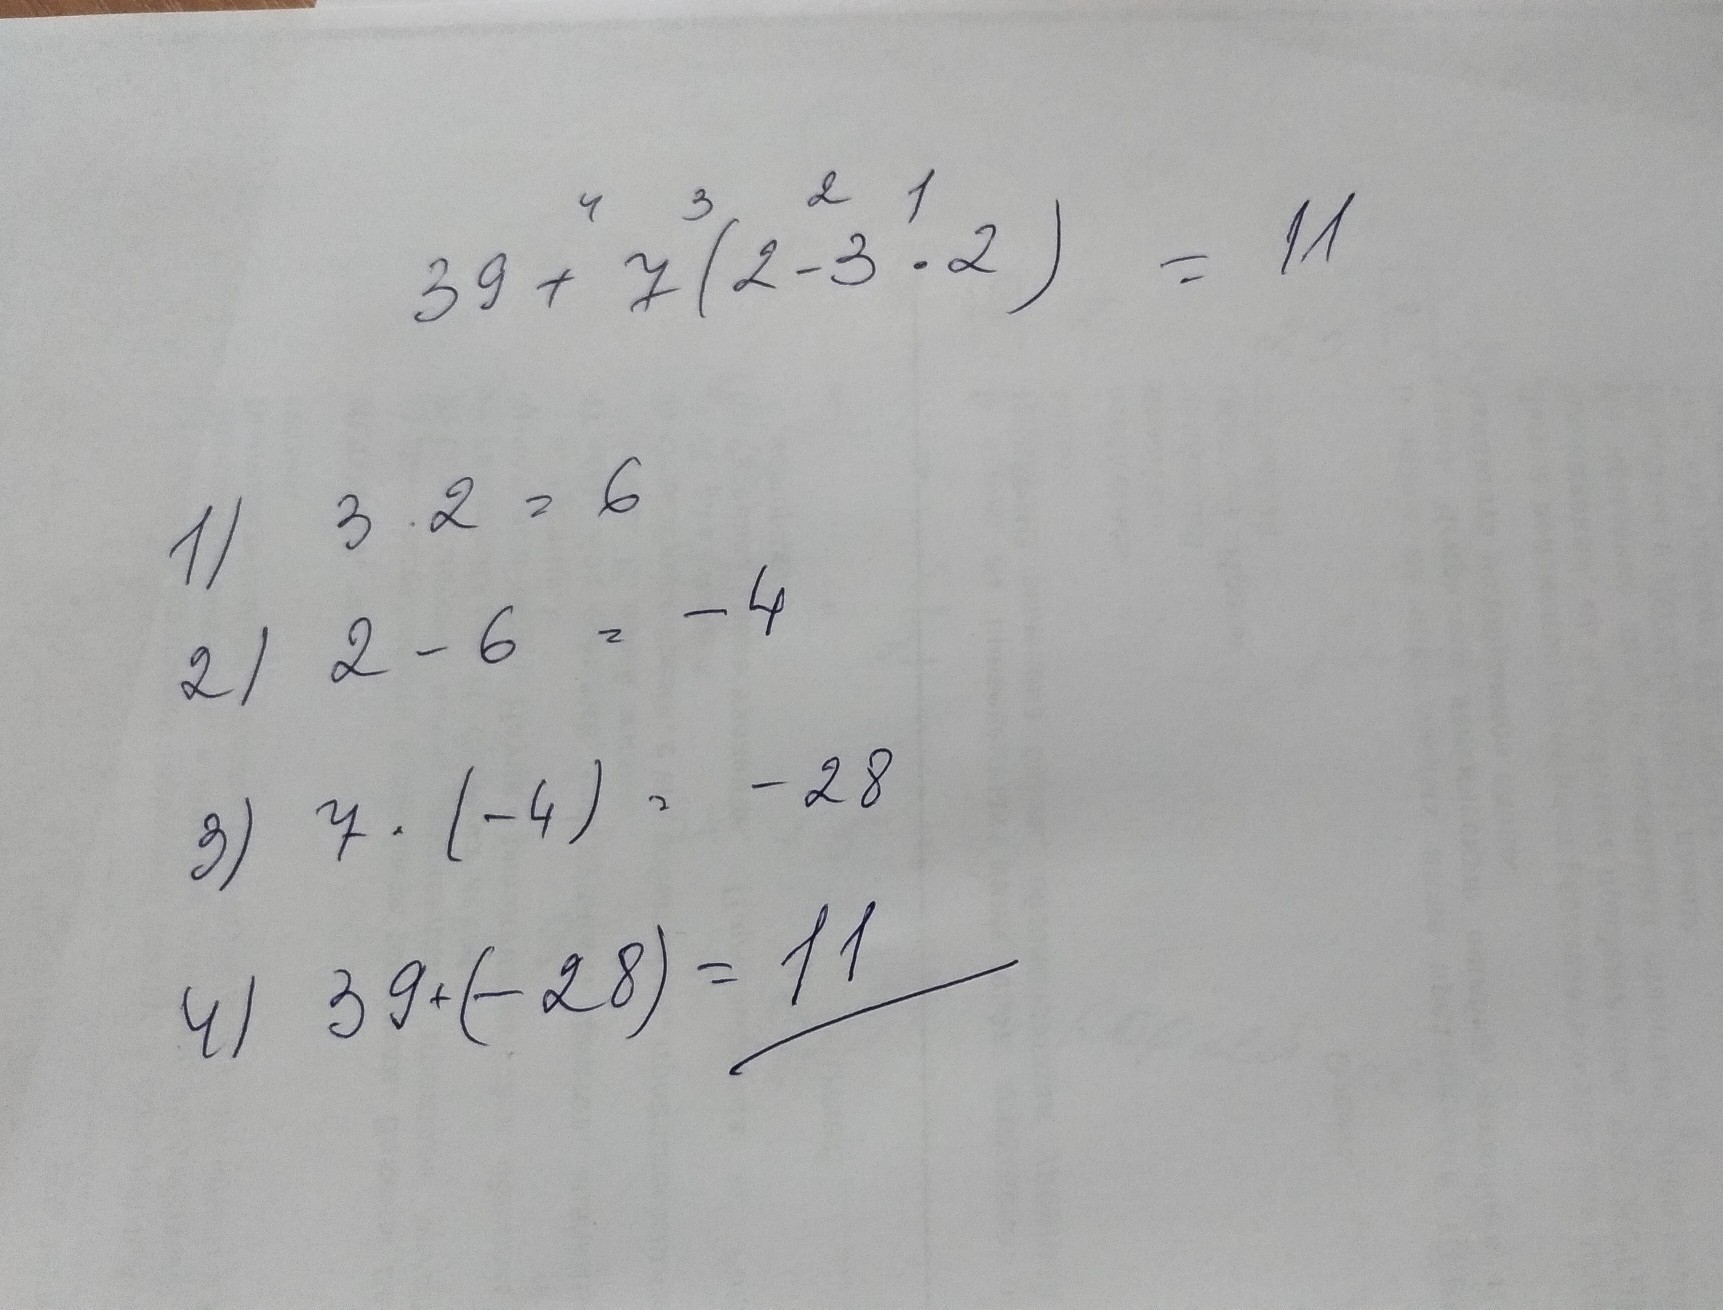 4 3 2 1
39 + 7 ( 2 - 3 · 2 ) = 11
1) 3 · 2 = 6
2) 2 - 6 = - 4
3) 7 · ( - 4 ) = - 28
4) 39 + ( - 28 ) = 11